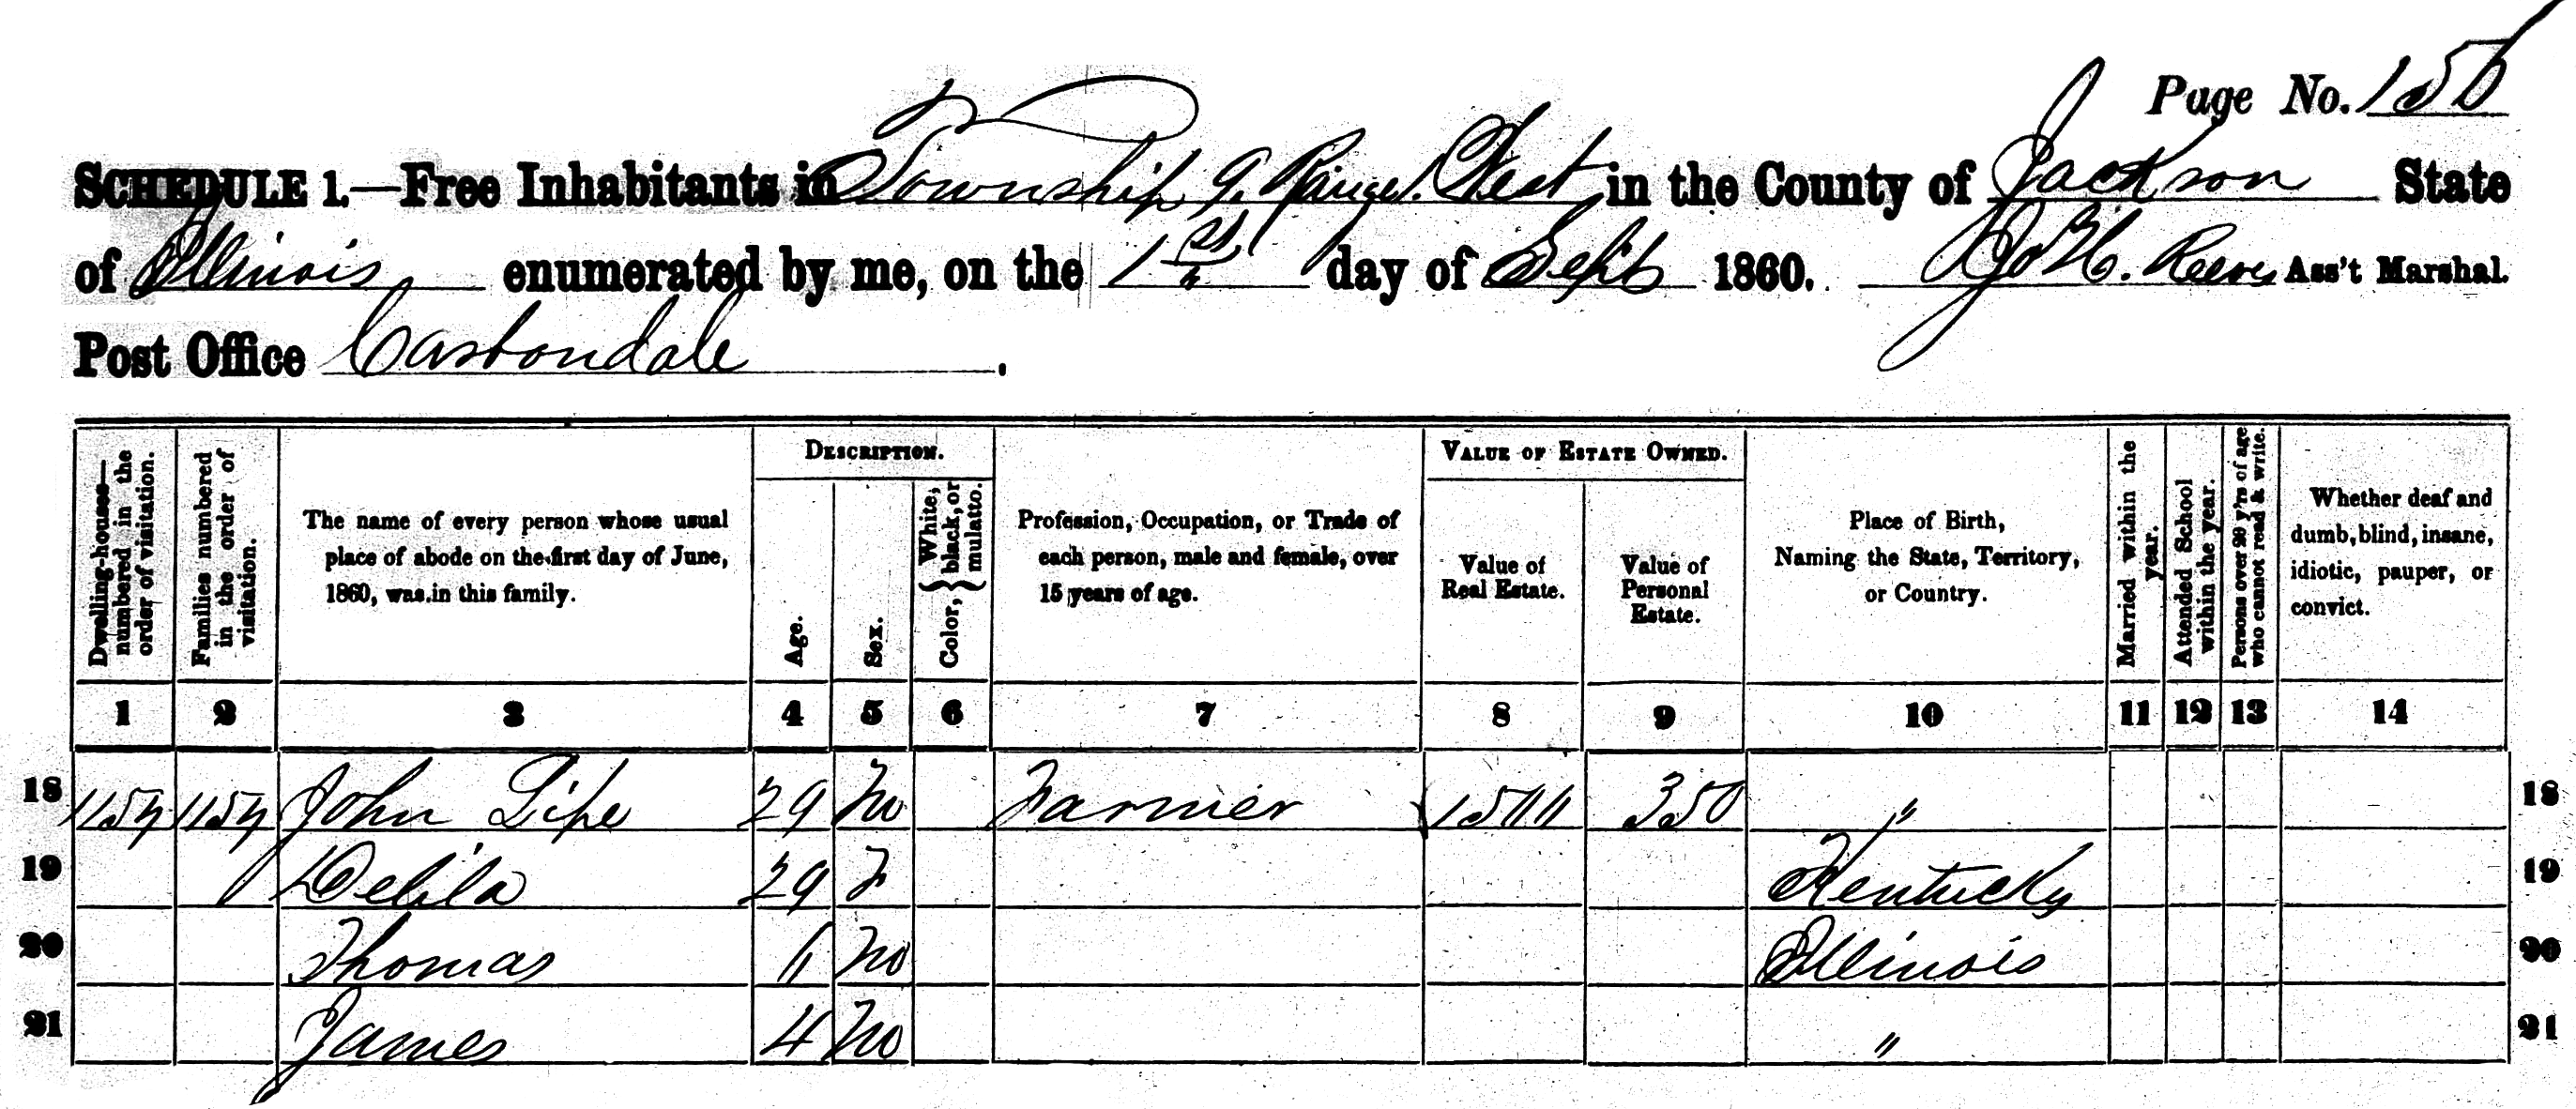 Page No. 156
SCHEDULE 1.—Free Inhabitants in Township 9. Range 1. West in the County of Jackson State
of Illinois enumerated by me, on the 1st day of Sept 1860. Jo H. Reeves Ass't Marshal.
Post Office Carbondale.
DESCRIPTION. VALUE OF ESTATE OWNED.
Dwelling-houses—numbered in the order of visitation. Families numbered in the order of visitation. The name of every person whose usual place of abode on the first day of June, 1860, was in this family. Age. Sex. Color, { White, black, or mulatto. Profession, Occupation, or Trade of each person, male and female, over 15 years of age. Value of Real Estate. Value of Personal Estate. Place of Birth, Naming the State, Territory, or Country. Married within the year. Attended School within the year. Persons over 20 y'rs of age who cannot read & write. Whether deaf and dumb, blind, insane, idiotic, pauper, or convict.
1 2 3 4 5 6 7 8 9 10 11 12 13 14
18 1154 1154 John Lipe 29 M Farmer 1500 350 " 18
19 Delila 29 F Kentucky 19
20 Thomas 6 M Illinois 20
21 James 4 M " 21